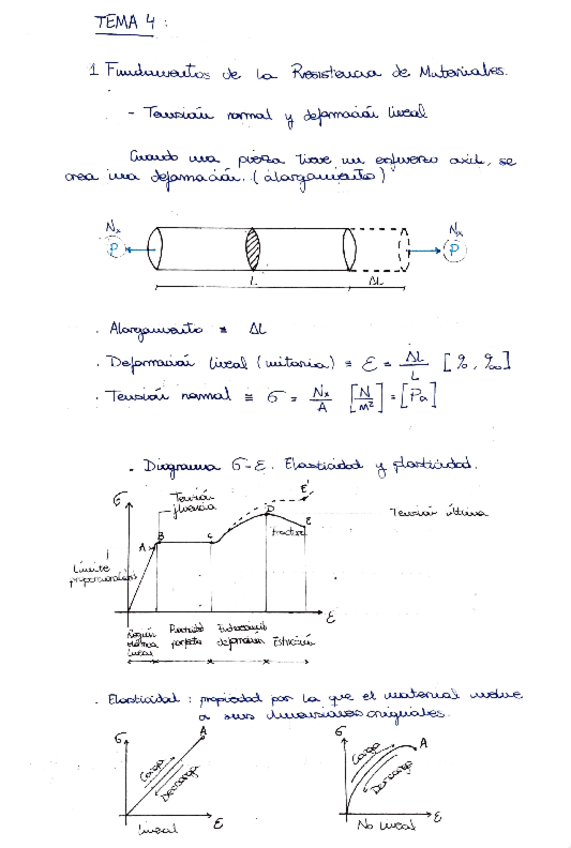 TEMA 4 :
1 Fundamentos de la Resistencia de Materiales.
- Tensión normal y deformación lineal
Cuando una pieza tiene un esfuerzo axil, se
crea una deformación. (alargamiento)
Nx Nx
P P
L ΔL
. Alargamiento ≡ ΔL
. Deformación lineal (unitaria) ≡ ε = ΔL/L [%, ‰]
. Tensión normal ≡ σ = Nx/A [N/m²] = [Pa]
. Diagrama σ-ε. Elasticidad y plasticidad.
σ Tensión fluencia E'
A B C D E
fractura
Tensión última
Límite
proporcionalidad
ε
Región elástica lineal
Plasticidad perfecta
Endurecimiento deformación
Estricción
. Elasticidad : propiedad por la que el material vuelve
a sus dimensiones originales.
σ A
Carga
Descarga
ε
Lineal
σ A
Carga
Descarga
ε
No lineal